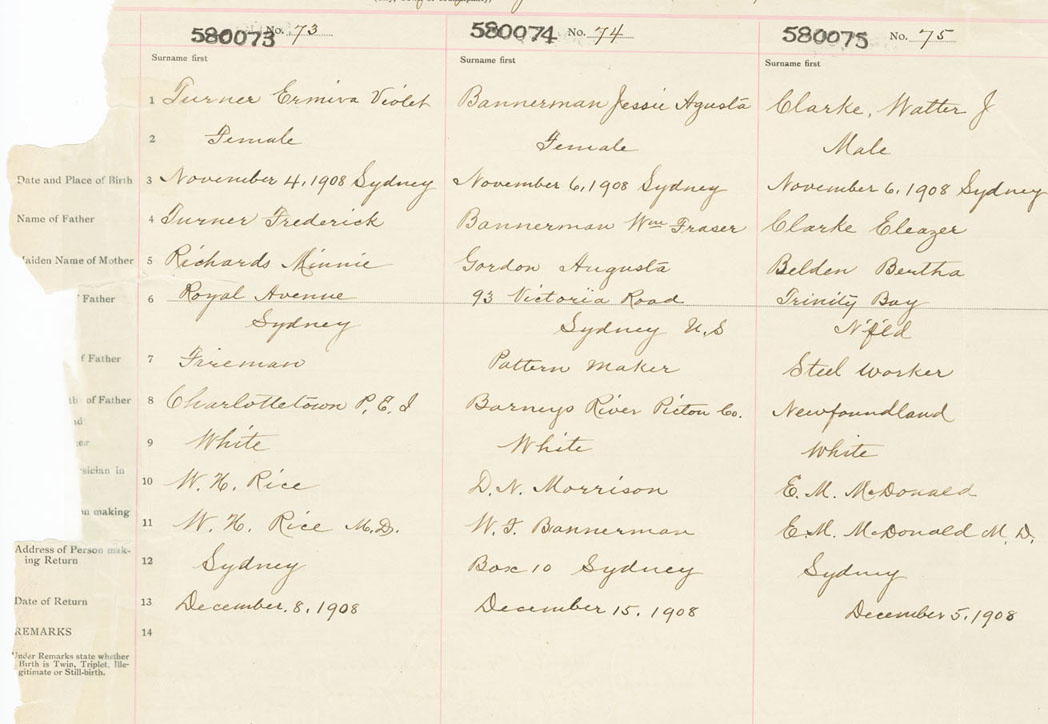 580073 No. 73
580074 No. 74
580075 No. 75
Surname first
Surname first
Surname first
1 Turner Ermina Violet
Bannerman Jessie Agusta
Clarke, Walter J
2 Female
Female
Male
Date and Place of Birth 3 November 4, 1908 Sydney
November 6, 1908 Sydney
November 6, 1908 Sydney
Name of Father 4 Turner Frederick
Bannerman Wm Fraser
Clarke Eleazer
aiden Name of Mother 5 Richards Minnie
Gordon Augusta
Belden Bertha
Father 6 Royal Avenue
93 Victoria Road
Trinity Bay
Sydney
Sydney U,S
N'f'ld
f Father 7 Fireman
Pattern Maker
Steel Worker
th of Father 8 Charlottetown P, E, I
Barneys River Pictou Co.
Newfoundland
9 White
White
White
sician in
10 W. H. Rice
D. N. Morrison
E. M. McDonald
making
11 W. H. Rice M.D.
W. F. Bannerman
E. M. McDonald M. D.
Address of Person mak-
ing Return 12 Sydney
Box 10 Sydney
Sydney
Date of Return 13 December. 8, 1908
December 15. 1908
December 5, 1908
REMARKS 14
Under Remarks state whether
Birth is Twin, Triplet, Ille-
gitimate or Still-birth.